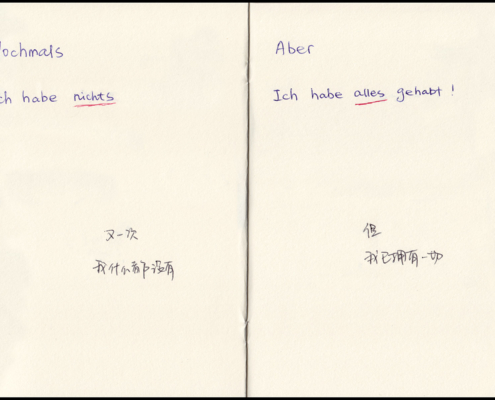 Nochmals
Ich habe nichts
又一次
我什么都没有
Aber
Ich habe alles gehabt !
但
我已拥有一切